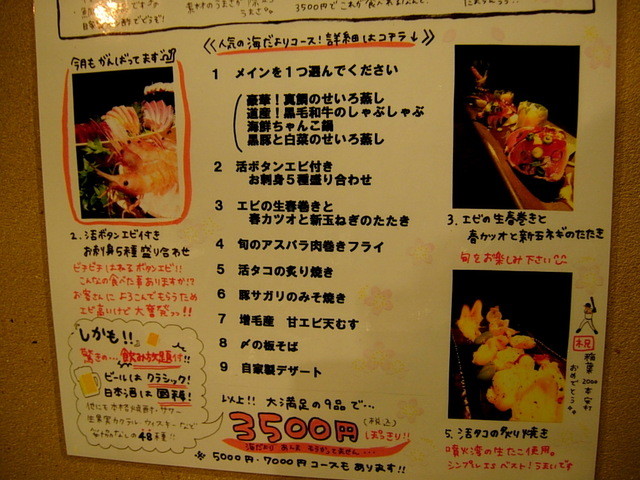 3500円でこれが食べれるなんて、
《人気の海だよりコース！詳細はコチラ↓》
今月もがんばってます
1 メインを１つ選んでください
豪華！真鯛のせいろ蒸し
道産！黒毛和牛のしゃぶしゃぶ
海鮮ちゃんこ鍋
黒豚と白菜のせいろ蒸し
2 活ボタンエビ付き
お刺身５種盛り合わせ
3 エビの生春巻きと
春カツオと新玉ねぎのたたき
4 旬のアスパラ肉巻きフライ
5 活タコの炙り焼き
6 豚サガリのみそ焼き
7 増毛産 甘エビ天むす
8 〆の板そば
9 自家製デザート
以上!! 大満足の9品で…
3500円
(税込)
ぽっきり!!
※5000円・7000円コースもあります!!
2. 活ボタンエビ付き
お刺身5種盛り合わせ
ピチピチはねるボタンエビ!!
こんなの食べた事ありますか!?
お客さんによろこんでもらうため
エビ高いけど大奮発っ!!
しかも!!
驚きの…飲み放題付!!
ビールはクラシック!
日本酒は国稀!
など 48種!!
3. エビの生春巻きと
春カツオと新玉ネギのたたき
旬をお楽しみ下さい
祝
稲葉
2000本安打
おめでとう
5. 活タコの炙り焼き
噴火湾の生たこ使用。
シンプル is ベスト!うまいです